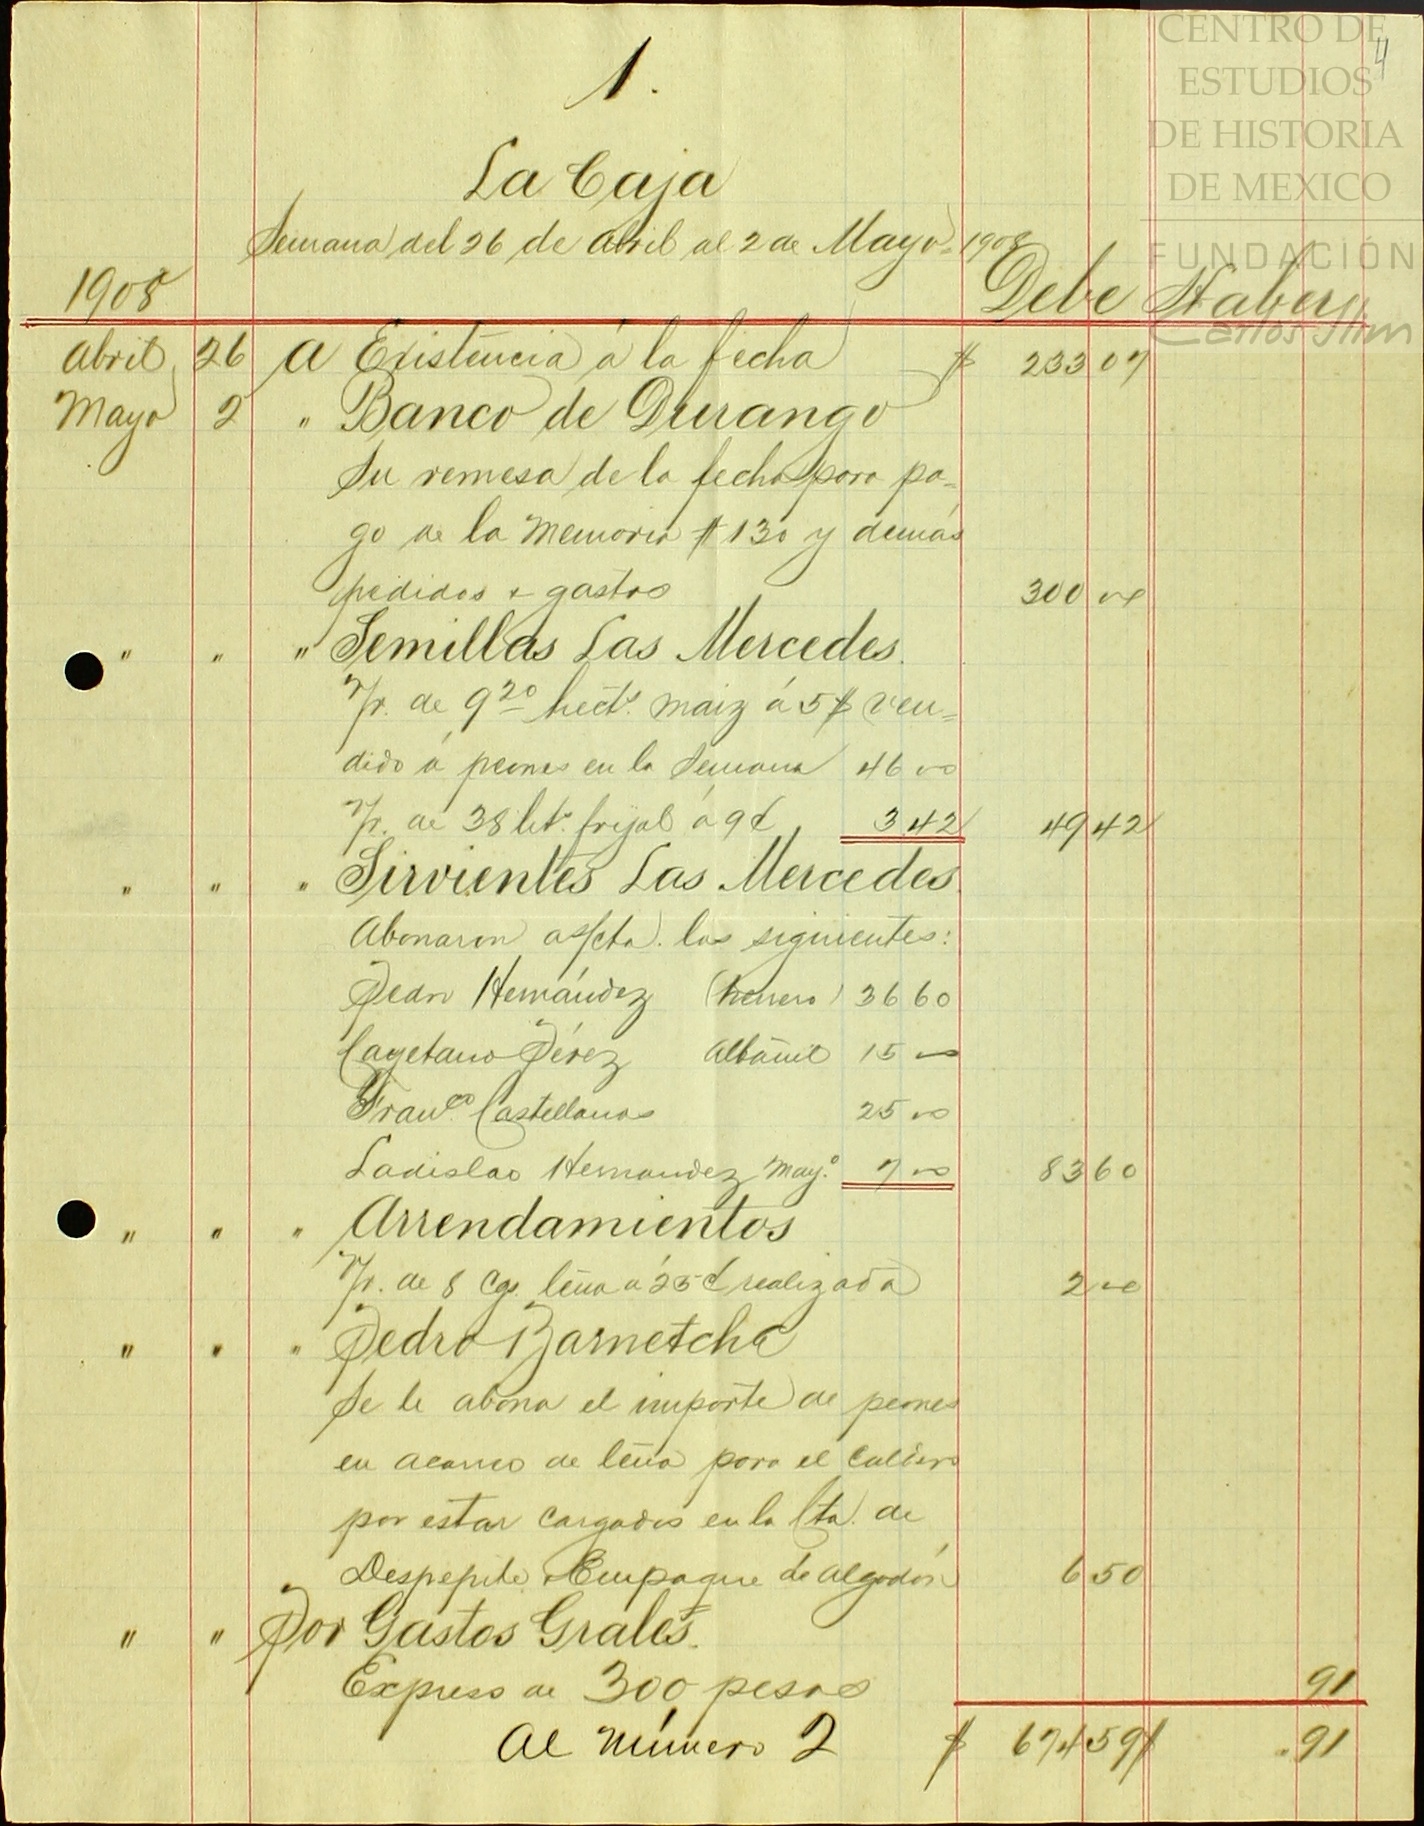 CENTRO DE
ESTUDIOS
DE HISTORIA
DE MEXICO
FUNDACIÓN
Carlos Slim
4
1.
La Caja
Semana del 26 de abril al 2 de Mayo - 1908
1908 Debe Haber
Abril 26 A Existencia á la fecha $ 233 07
Mayo 2 " Banco de Durango
Su remesa de la fecha para pa=
go de la Memoria $130 y demás
pedidos & gastos 300 00
" " " Semillas Las Mercedes.
Yr. de 9 20 hects. maiz á 5$ ven=
dido á peones en la Semana 46 00
Yr. de 38 lits. frijol á 9¢ 3 42 49 42
" " " Sirvientes Las Mercedes.
Abonaron a s/cta. los siguientes:
Pedro Hernández (herrero) 36 60
Cayetano Pérez Albañil 15 00
Franco. Castellanos 25 00
Ladislao Hernandez Mayo. 7 00 83 60
" " " Arrendamientos
Yr. de 8 cgs. leña a 25¢ realizada 2 00
" " " Pedro Barnetche
Se le abona el importe de peones
en acarreo de leña para el
por estar cargados en la Cta. de
Despepite & Empaque de algodón 6 50
" " Por Gastos Grales.
Expreso de 300 pesos 91
Al Número 2 $ 674 59 $ .91